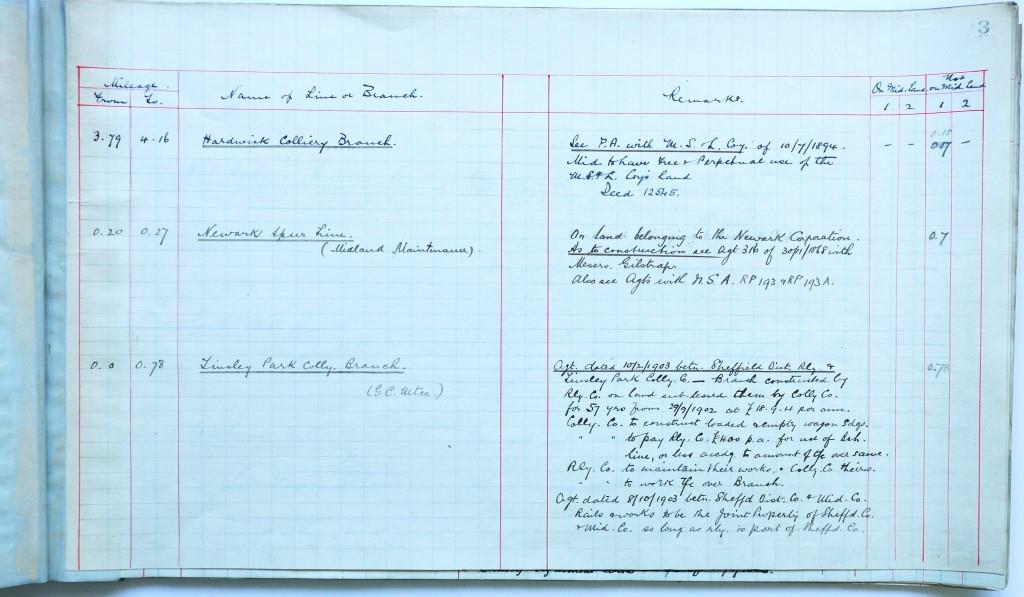 3
Mileage.
From To.
Name of Line or Branch.
Remarks.
On Mid. Land
Not on Mid Land
1 2 1 2
3.79 4.16 Hardwick Colliery Branch.
See P.A. with M.S. & L. Coy. of 10/7/1894.
Mid to have free & Perpetual use of the
M.S & L. Coy's land
Deed 12545.
0.18
- - 0.17 -
0.20 0.27 Newark Spur Line.
(Midland Maintenance).
On land belonging to the Newark Corporation.
As to construction see Agt 316 of 30/1/1868 with
Messrs. Gilstrap.
Also see Agts with N.S.A. RP 193 & RP 193A.
0.7
0.0 0.78 Tinsley Park Colly. Branch.
(G.C. Mtce.)
Agt. dated 10/2/1903 betn. Sheffield Dist. Rly. &
Tinsley Park Colly. Co. — Branch constructed by
Rly. Co. on land sub leased them by Colly Co.
for 57 yrs from 29/9/1902 at £18.9.4 per ann.
Colly. Co. to construct loaded & empty wagon Sdgs.
" " to pay Rly. Co. £400 p.a. for use of
line, or less accdg. to amount of tfc over same.
Rly. Co. to maintain their works, & Colly. Co theirs.
" " to work tfc over Branch.
Agt. dated 8/10/1903 betn. Sheffd Dist. Co. & Mid. Co.
Rails & works to be the Joint Property of Sheffd. Co.
& Mid. Co. so long as rly. is part of Sheffd. Co.
0.78